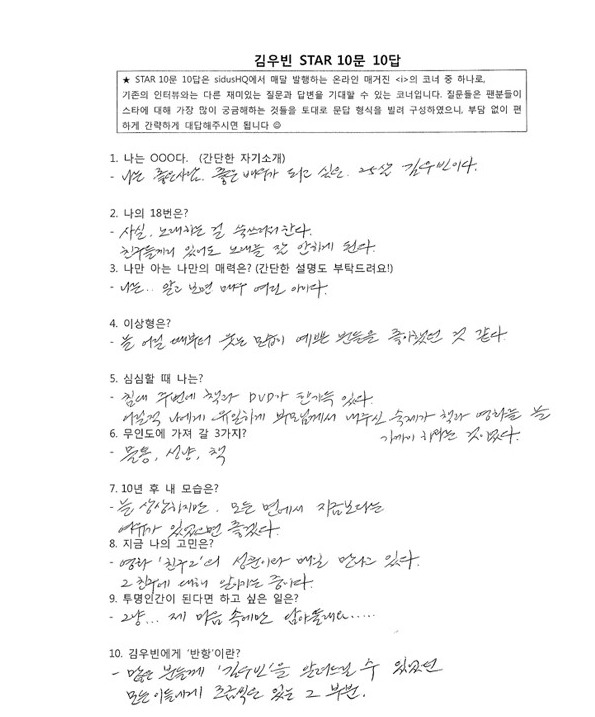 김우빈 STAR 10문 10답
★ STAR 10문 10답은 sidusHQ에서 매달 발행하는 온라인 매거진 <i>의 코너 중 하나로,
기존의 인터뷰와는 다른 재미있는 질문과 답변을 기대할 수 있는 코너입니다. 질문들은 팬분들이
스타에 대해 가장 많이 궁금해하는 것들을 토대로 문답 형식을 빌려 구성하였으니, 부담 없이 편
하게 간략하게 대답해주시면 됩니다 ☺
1. 나는 OOO다. (간단한 자기소개)
- 나는 좋은사람, 좋은 배우가 되고 싶은. 25살 김우빈이다.
2. 나의 18번은?
- 사실, 노래하는 걸 쑥쓰러워한다.
친구들끼리 있어도 노래를 잘 안하게 된다.
3. 나만 아는 나만의 매력은? (간단한 설명도 부탁드려요!)
- 나는.. 알고 보면 매우 여린 아이다.
4. 이상형은?
- 늘 어릴 때부터 웃는 모습이 예쁜 분들을 좋아했던 것 같다.
5. 심심할 때 나는?
- 침대 주변에 책과 DVD가 한가득 있다.
어릴적 나에게 유일하게 부모님께서 내주신 숙제가 책과 영화를 늘
가까이 하라는 것이었다.
6. 무인도에 가져 갈 3가지?
- 물통, 성냥, 책
7. 10년 후 내 모습은?
- 늘 상상하지만. 모든 면에서 지금보다는
여유가 있었으면 좋겠다.
8. 지금 나의 고민은?
- 영화 '친구2'의 성훈이와 매일 만나고 있다.
그 친구에 대해 알아가는 중이다.
9. 투명인간이 된다면 하고 싶은 일은?
- 그냥... 제 마음 속에만 담아둘래요.....
10. 김우빈에게 '반항'이란?
- 많은 분들께 '김우빈'을 알려드릴 수 있었던
모든이들에게 조금씩은 있는 그 부분.